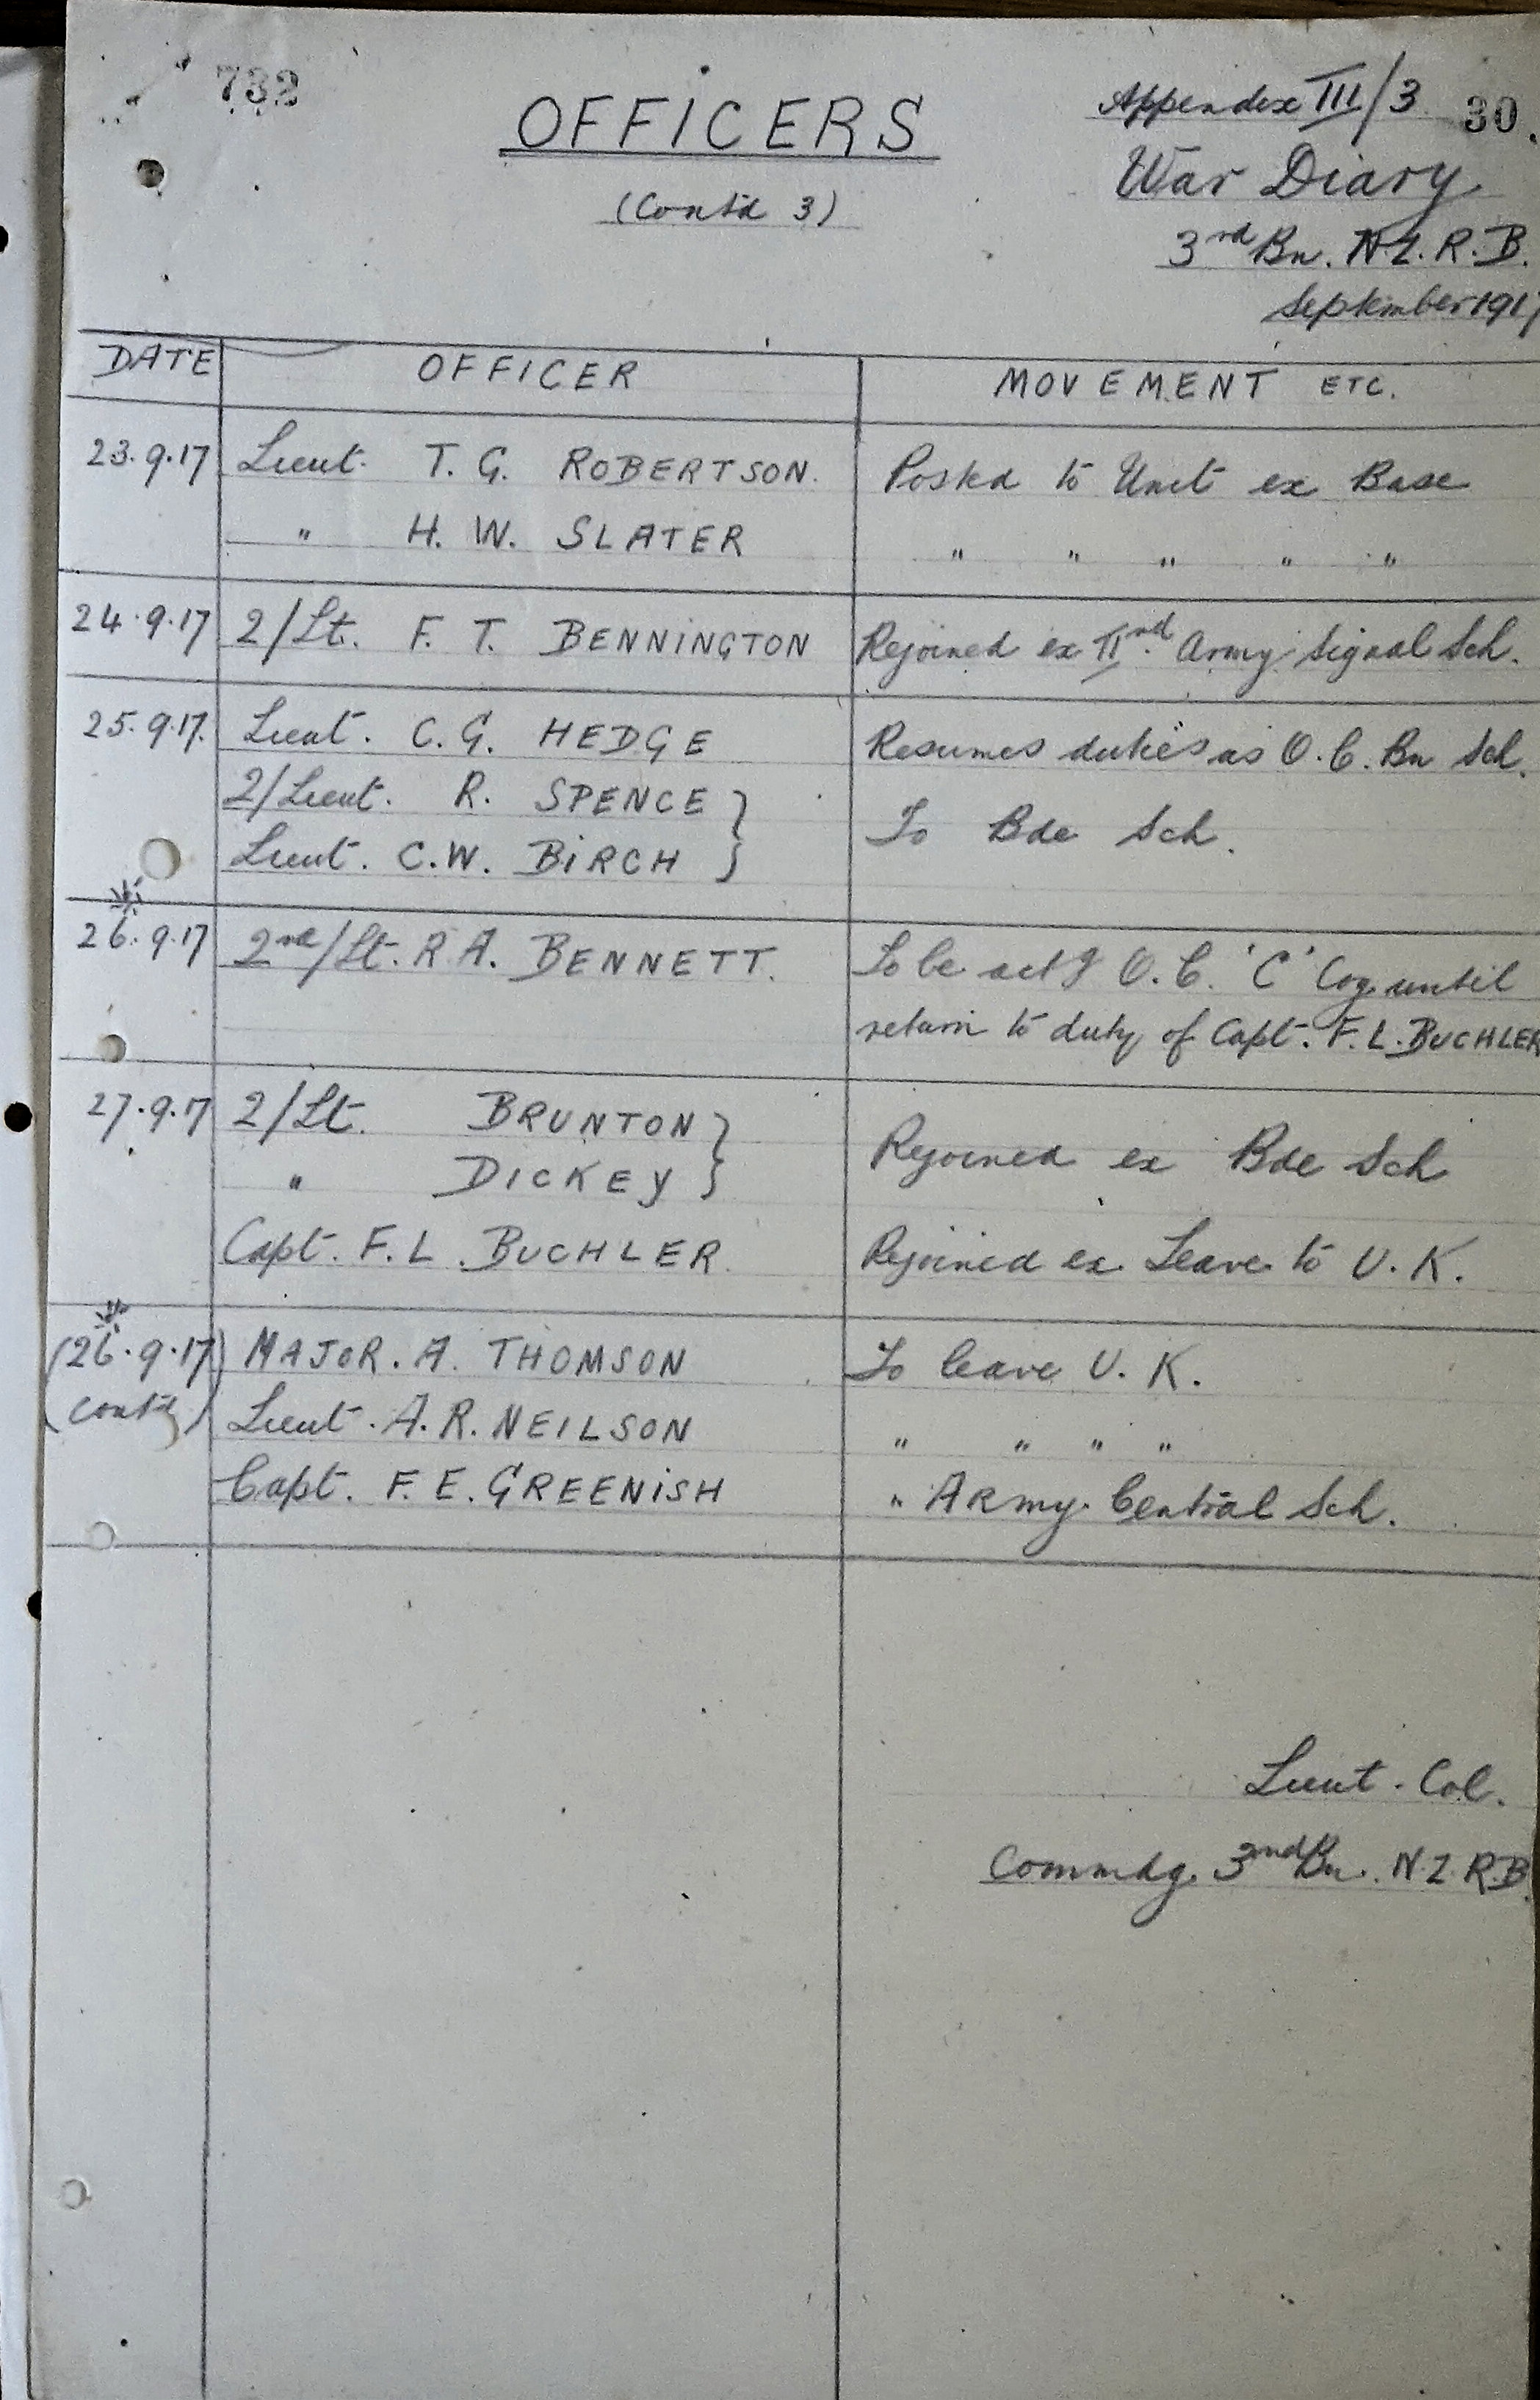 732
OFFICERS
(Contd 3)
Appendix III/3 30.
War Diary
3rd Bn. N.Z.R.B.
September 1917
DATE OFFICER MOVEMENT ETC.
23.9.17 Lieut. T. G. ROBERTSON. Posted to Unit ex Base
" H. W. SLATER " " " " "
24.9.17 2/Lt. F. T. BENNINGTON Rejoined ex IInd Army Signal Sch.
25.9.17. Lieut. C.G. HEDGE Resumes duties as O.C. Bn Sch.
2/Lieut. R. SPENCE }
Lieut. C.W. BIRCH } To Bde Sch.
26.9.17 2nd/Lt. R A. BENNETT. To be actg O.C. 'C' Coy until
return to duty of Capt. F.L. BUCHLER
27.9.17 2/Lt. BRUNTON }
" DICKEY } Rejoined ex Bde Sch
Capt. F.L. BUCHLER. Rejoined ex Leave to U.K.
(26.9.17) MAJOR. A. THOMSON To leave U.K.
(contd) Lieut. A.R. NEILSON " " " "
Capt. F.E. GREENISH " ARmy Central Sch.
Lieut. Col.
Commdg. 3nd Bn. N.Z.R.B.